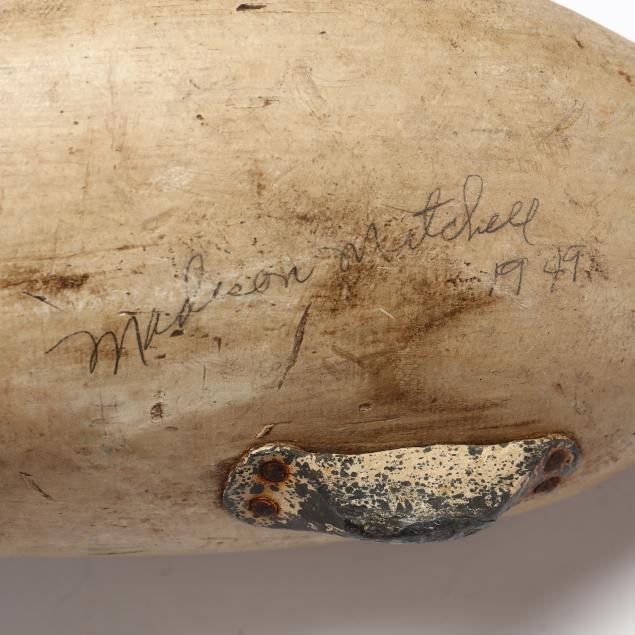 Madison Mitchell
1949